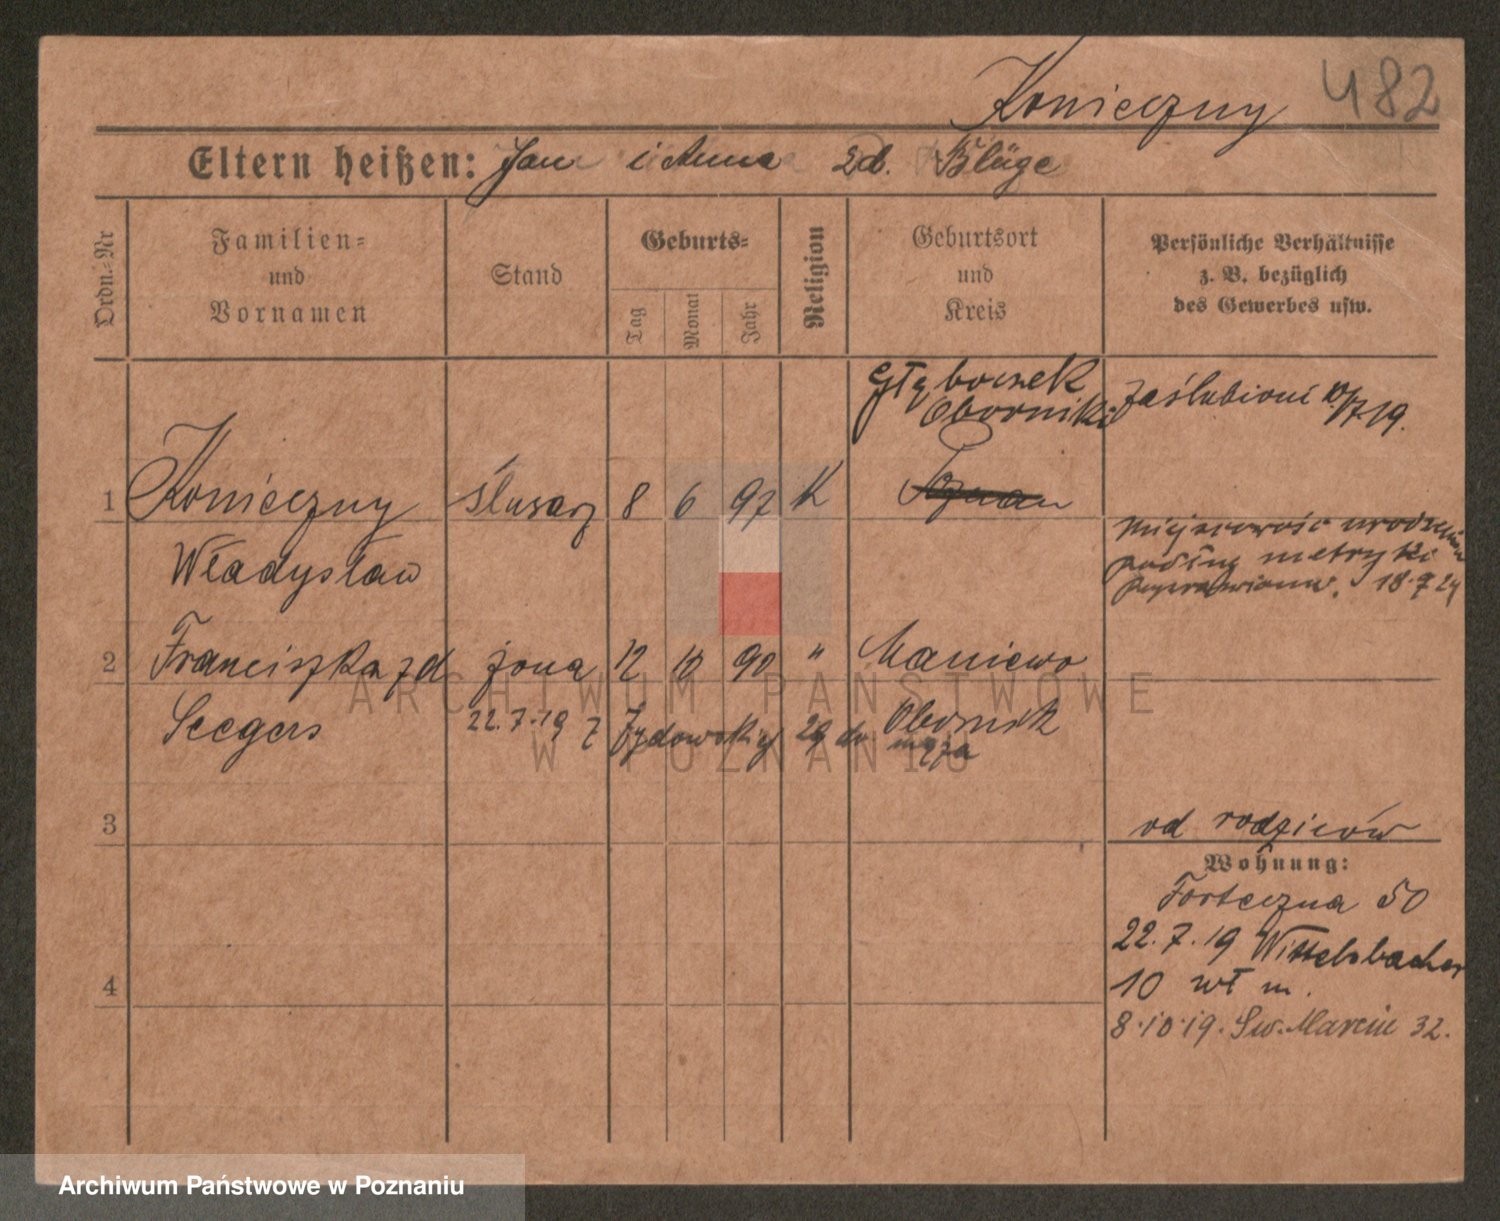 482
Konieczny
Eltern heißen: Jan i Anna zd. Blüge
Ordn.-Nr
Familien-
und
Vornamen
Stand
Geburts-
Tag
Monat
Jahr
Religion
Geburtsort
und
Kreis
Persönliche Verhältnisse
z. B. bezüglich
des Gewerbes usw.
Głęboczek
Oborniki
zaślubieni 10/7.19.
1 Konieczny ślusarz 8 6 97 K Poznań
Władysław
miejscowość urodzenia
podług metryki
poprawiona. 18.9.24
2 Franciszka zd żona 12 10 90 " Maniewo
Seegers
22.7.19 z Żydowskiej 29 do męża
Obornik
3
od rodziców
Wohnung:
Forteczna 50
22.7.19 Wittelsbacher
10 wł m.
4
8.10.19. Św. Marcin 32.
ARCHIWUM PAŃSTWOWE
W POZNANIU
Archiwum Państwowe w Poznaniu